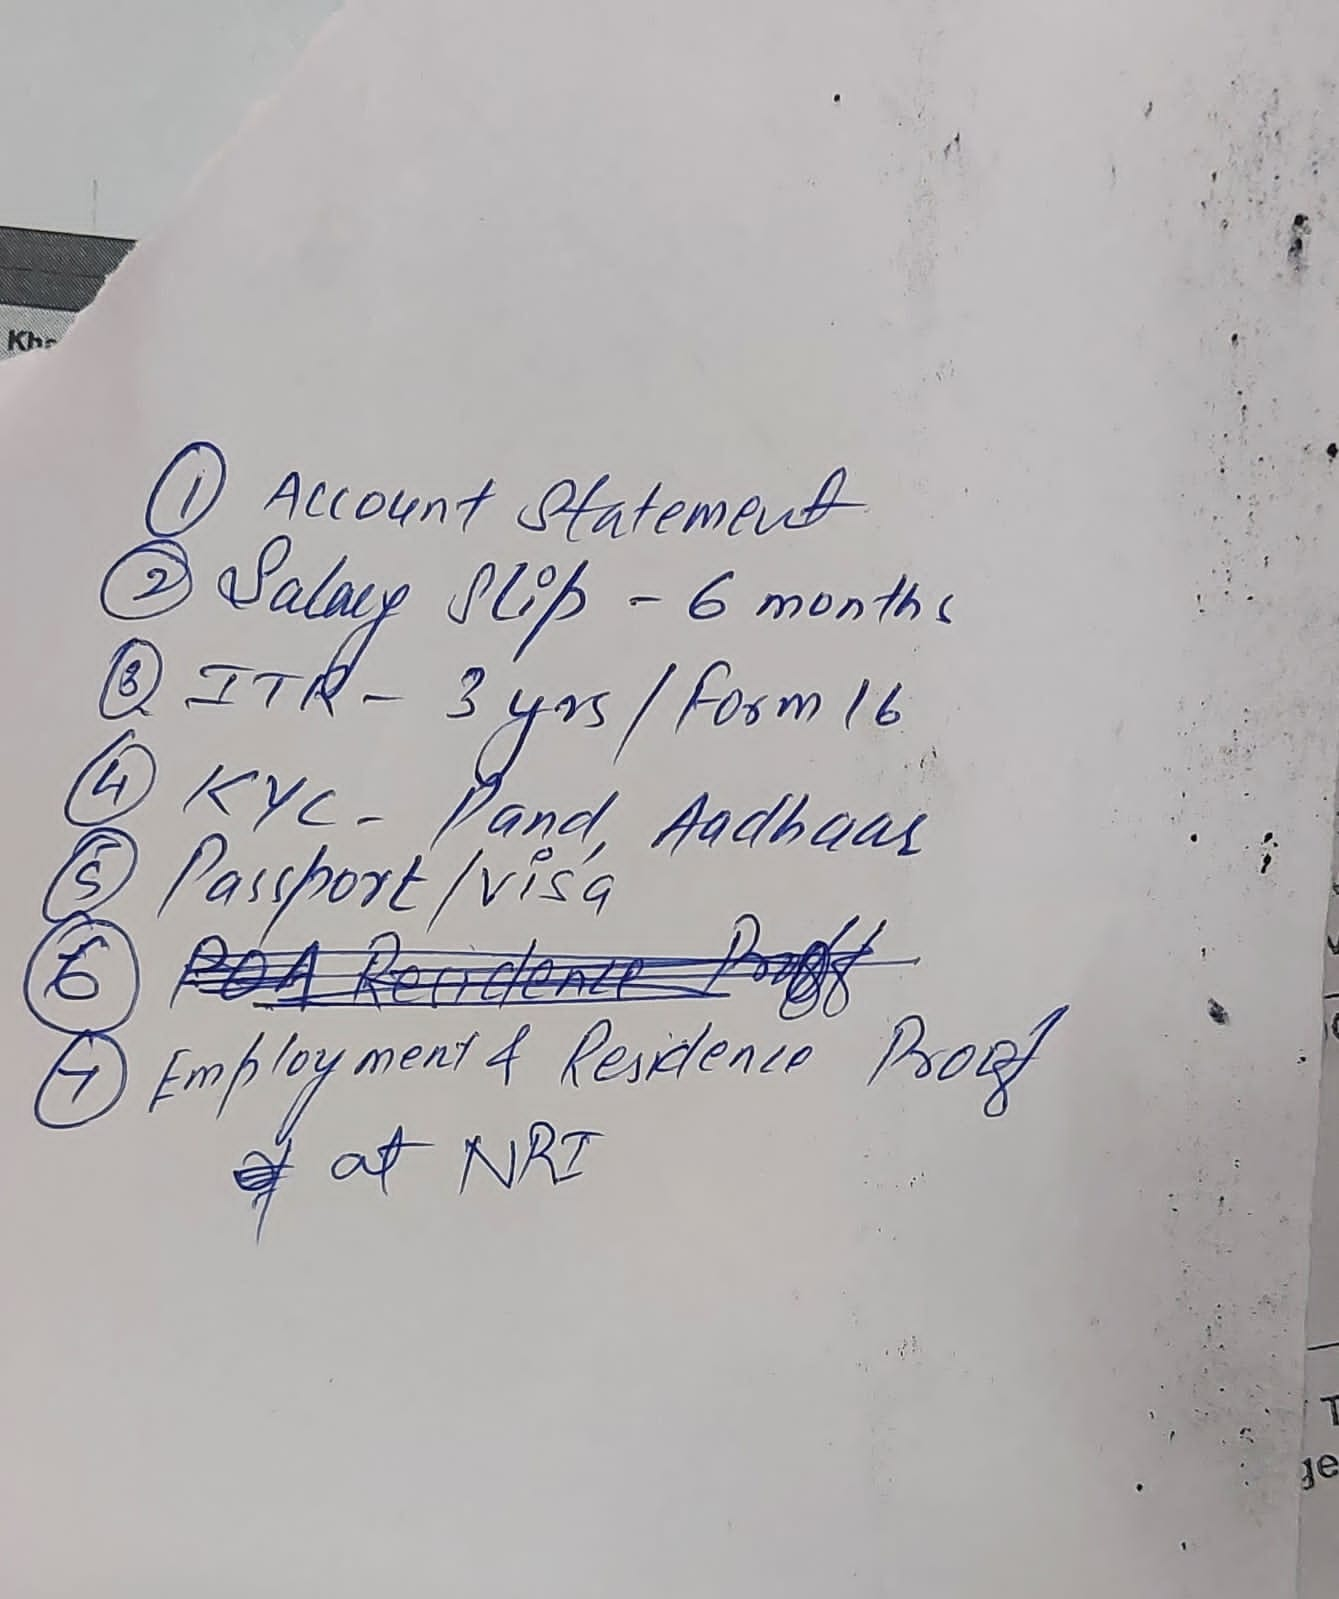 ① Account Statement
② Salary Slip - 6 months
③ ITR - 3 yrs / Form 16
④ KYC - Pand, Aadhaar
⑤ Passport / visa
⑥ POA Residence Proof
⑦ Employment & Residence Proof
at NRI